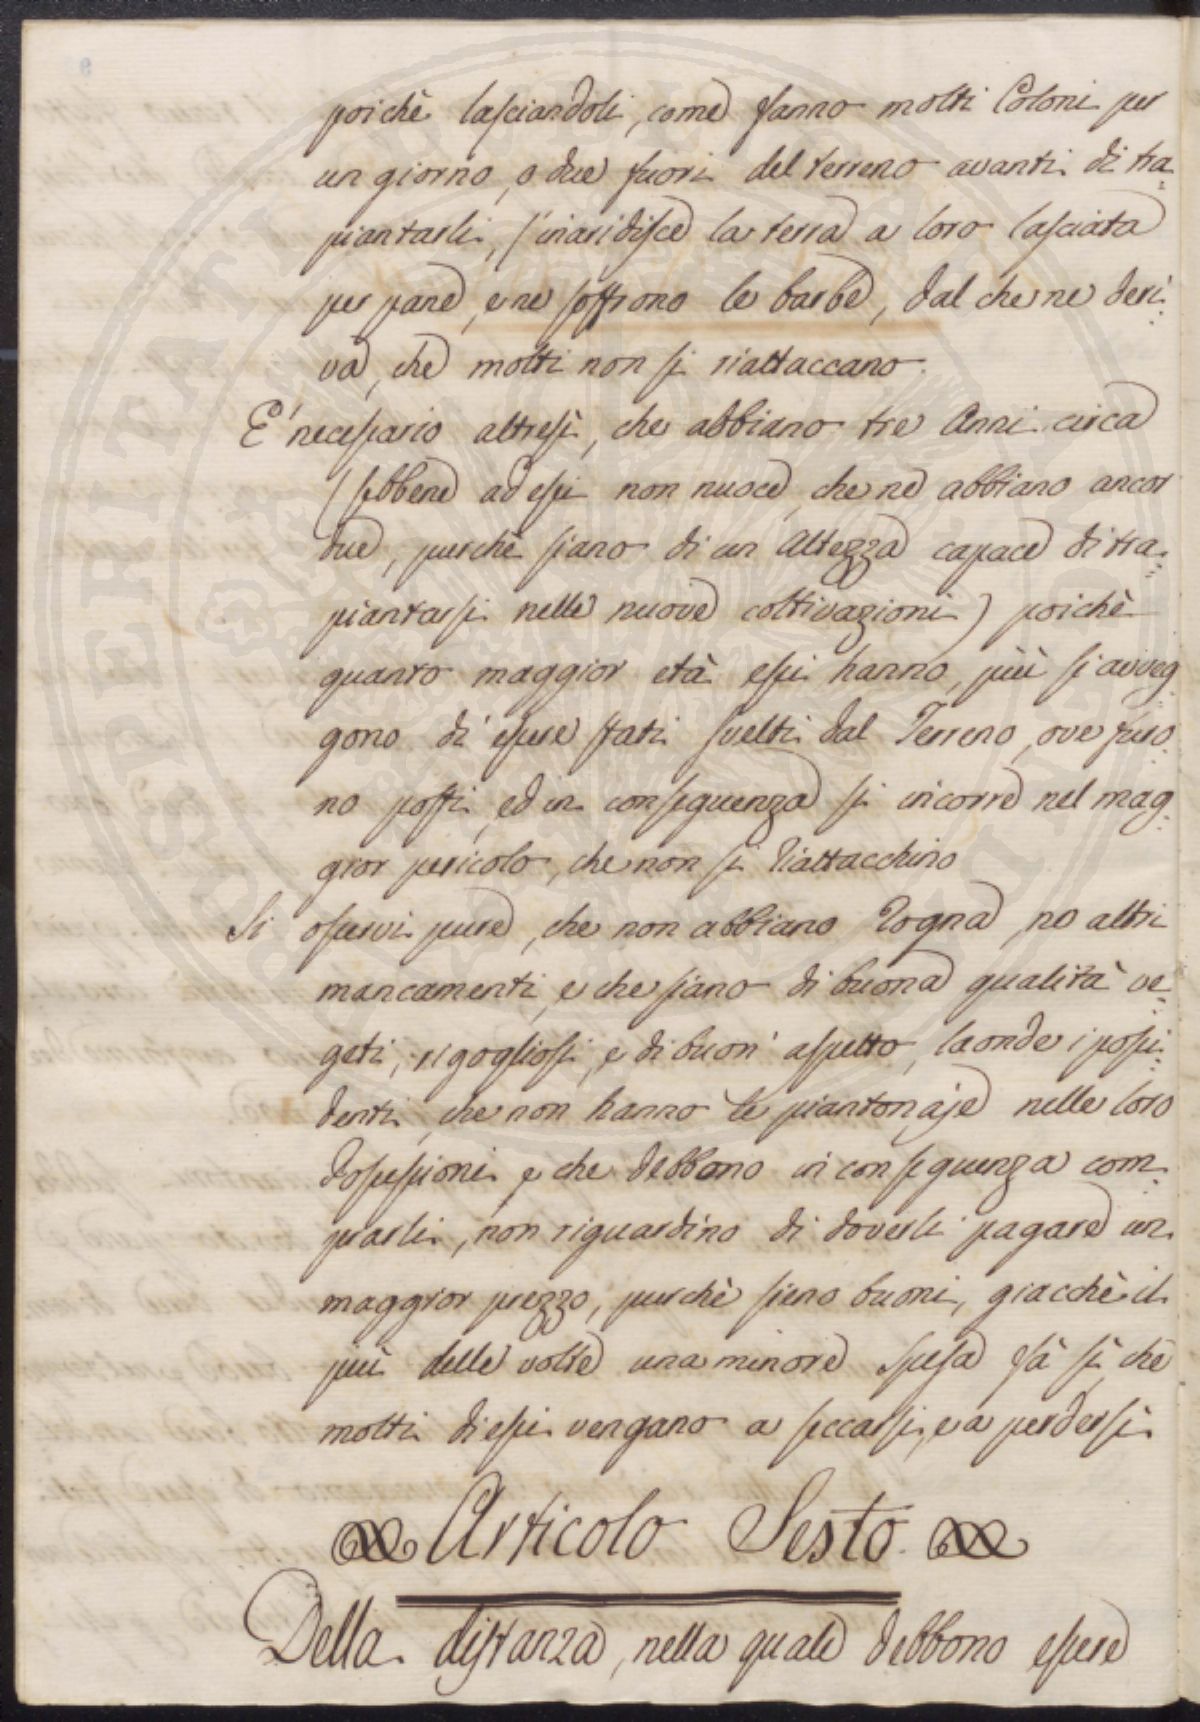 poichè lasciandoli, come fanno molti Coloni per
un giorno, o due fuori del terreno avanti di tra=
piantarli, s'inaridisce la terra a loro lasciata
per pane, e ne soffrono le barbe, dal che ne deri=
va, che molti non si riattaccano.
E' necessario altresì, che abbiano tre Anni circa
(sebbene ad essi non nuoce, che ne abbiano ancor
due, purchè siano di un Altezza capace di tra=
piantarsi nelle nuove coltivazioni) poichè
quanto maggior età essi hanno, più si avveg
gono di essere stati svelti dal Terreno, ove furo=
no posti, ed in conseguenza si incorre nel mag=
gior pericolo, che non si riattacchino
Si osservi pure, che non abbiano Rogna, nò altri
mancamenti, e che siano di buona qualità ve=
geti, rigogliosi, e di buon' aspetto, laonde i possi=
denti, che non hanno le piantonaje nelle loro
Possessioni, e che debbono in conseguenza com=
prarli, non riguardino di doverli pagare un
maggior prezzo, purchè sieno buoni, giacchè il
più delle volte una minore spesa fà sì, che
molti di essi vengano a seccarsi, e a perdersi.
Articolo Sesto.
Della distanza, nella quale debbono essere